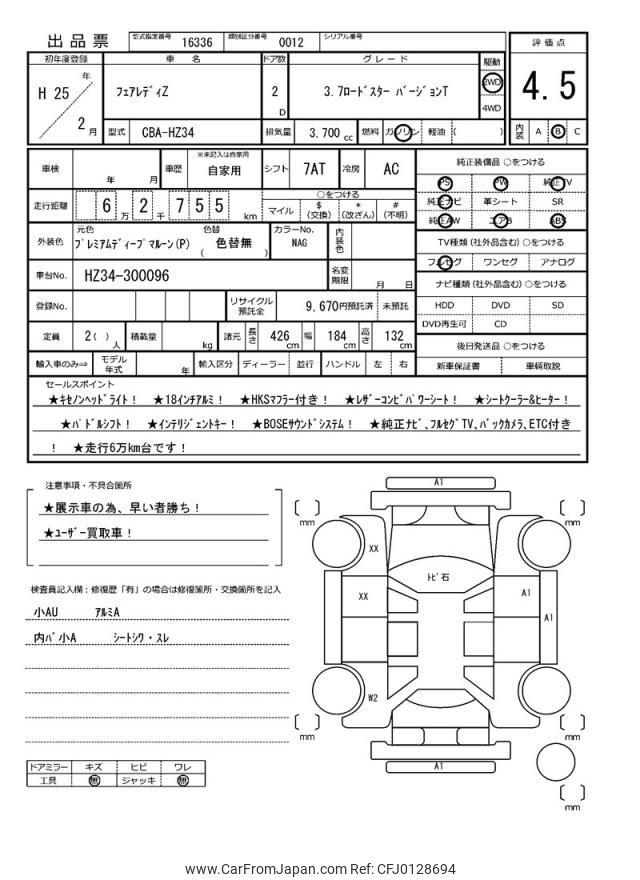 出品票 型式指定番号 16336 類別区分番号 0012 シリアル番号
評価点
4.5
内装 A B C
初年度登録 車名 ドア数 グレード 駆動
H 25 年 2 月
フェアレディZ
2 D
3.7ロードスター バージョンT
2WD
4WD
型式 CBA-HZ34 排気量 3,700 cc 燃料 ガソリン 軽油 ( )
車検 年 月 車歴 ※未記入は自家用 自家用 シフト 7AT 冷房 AC
走行距離 6 万 2 千 7 5 5 km
○をつける
マイル $ (交換) * (改ざん) # (不明)
外装色 元色 プレミアムディープマルーン(P) 色替 色替無 ( ) カラーNo. NAG 内装色
車台No. HZ34-300096 名変期限 月 日
登録No. リサイクル預託金 9,670円預託済 未預託
定員 2( ) 人 積載量 kg 諸元 長さ 426 cm 幅 184 cm 高さ 132 cm
輸入車のみ⇒ モデル年式 年 輸入区分 ディーラー 並行 ハンドル 左 右
純正装備品 ○をつける
PS PW 純正TV
純正ナビ 革シート SR
純正AW エアB ABS
TV種類(社外品含む)○をつける
フルセグ ワンセグ アナログ
ナビ種類(社外品含む)○をつける
HDD DVD SD
DVD再生可 CD
後日発送品 ○をつける
新車保証書 車輌取説
セールスポイント
★キセノンヘッドライト! ★18インチアルミ! ★HKSマフラー付き! ★レザーコンビパワーシート! ★シートクーラー&ヒーター!
★パドルシフト! ★インテリジェントキー! ★BOSEサウンドシステム! ★純正ナビ、フルセグTV、バックカメラ、ETC付き
! ★走行6万km台です!
注意事項・不具合箇所
★展示車の為、早い者勝ち!
★ユーザー買取車!
検査員記入欄:修復歴「有」の場合は修復箇所・交換箇所を記入
小AU アルミA
内バ小A シートシワ・スレ
ドアミラー キズ ヒビ ワレ
工具 無 ジャッキ 無
A1
mm
mm
XX
トビ石
XX
A1
A1
W2
mm
mm
A1
mm
www.CarFromJapan.com Ref: CFJ0128694